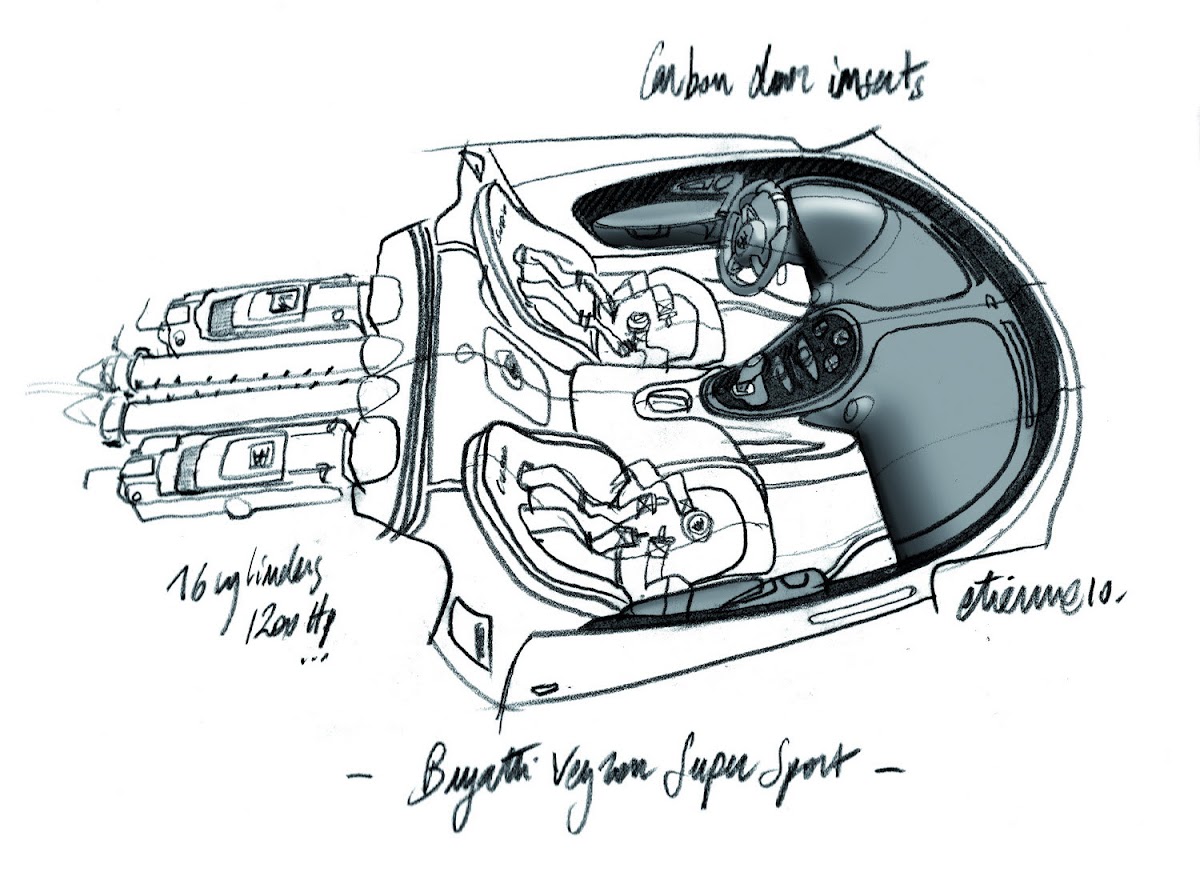 Carbon door inserts
16 cylinders
1200 Hp
...
etienne 10.
- Bugatti Veyron Super Sport -